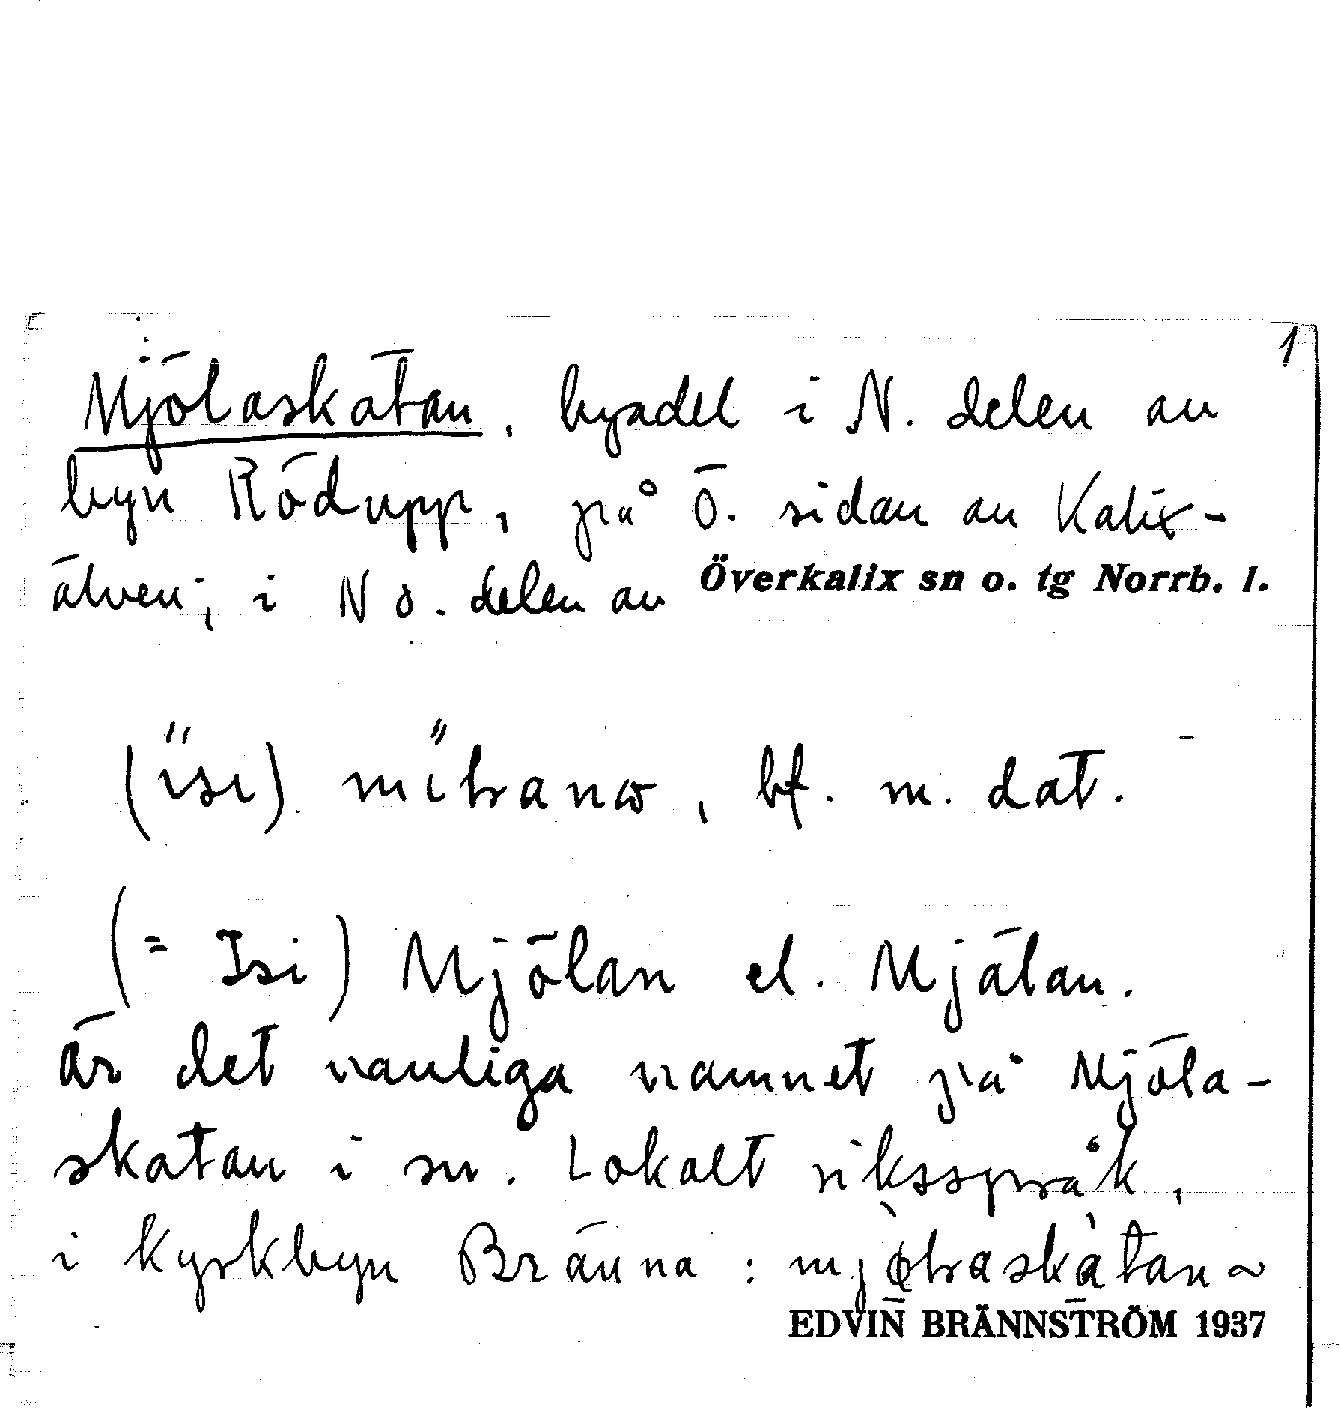 1
Mjölaskatan, byadel i N. delen av
byn Rödupp, på Ö. sidan av Kalix-
älven; i N ö. delen av Överkalix sn o. tg Norrb. l.
(isi) , bf. m. dat.
(= Isi) Mjölan el. Mjälan.
är det vanliga namnet på Mjöla-
skatan i sn. Lokalt riksspråk,
i kyrkbyn Bränna: ~
EDVIN BRÄNNSTRÖM 1937